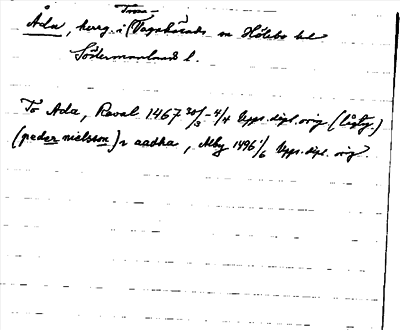 Trosa-
Åda, herrg. i (Vagnhärads sn Hölebo hd
Södermanlands l.
To Ada, Raval 1467 30/3-4/4 Upps. dipl. orig (lågty.)
(peder nielsson) i aadha, Alby 1496 1/6 Upps. dipl. orig.